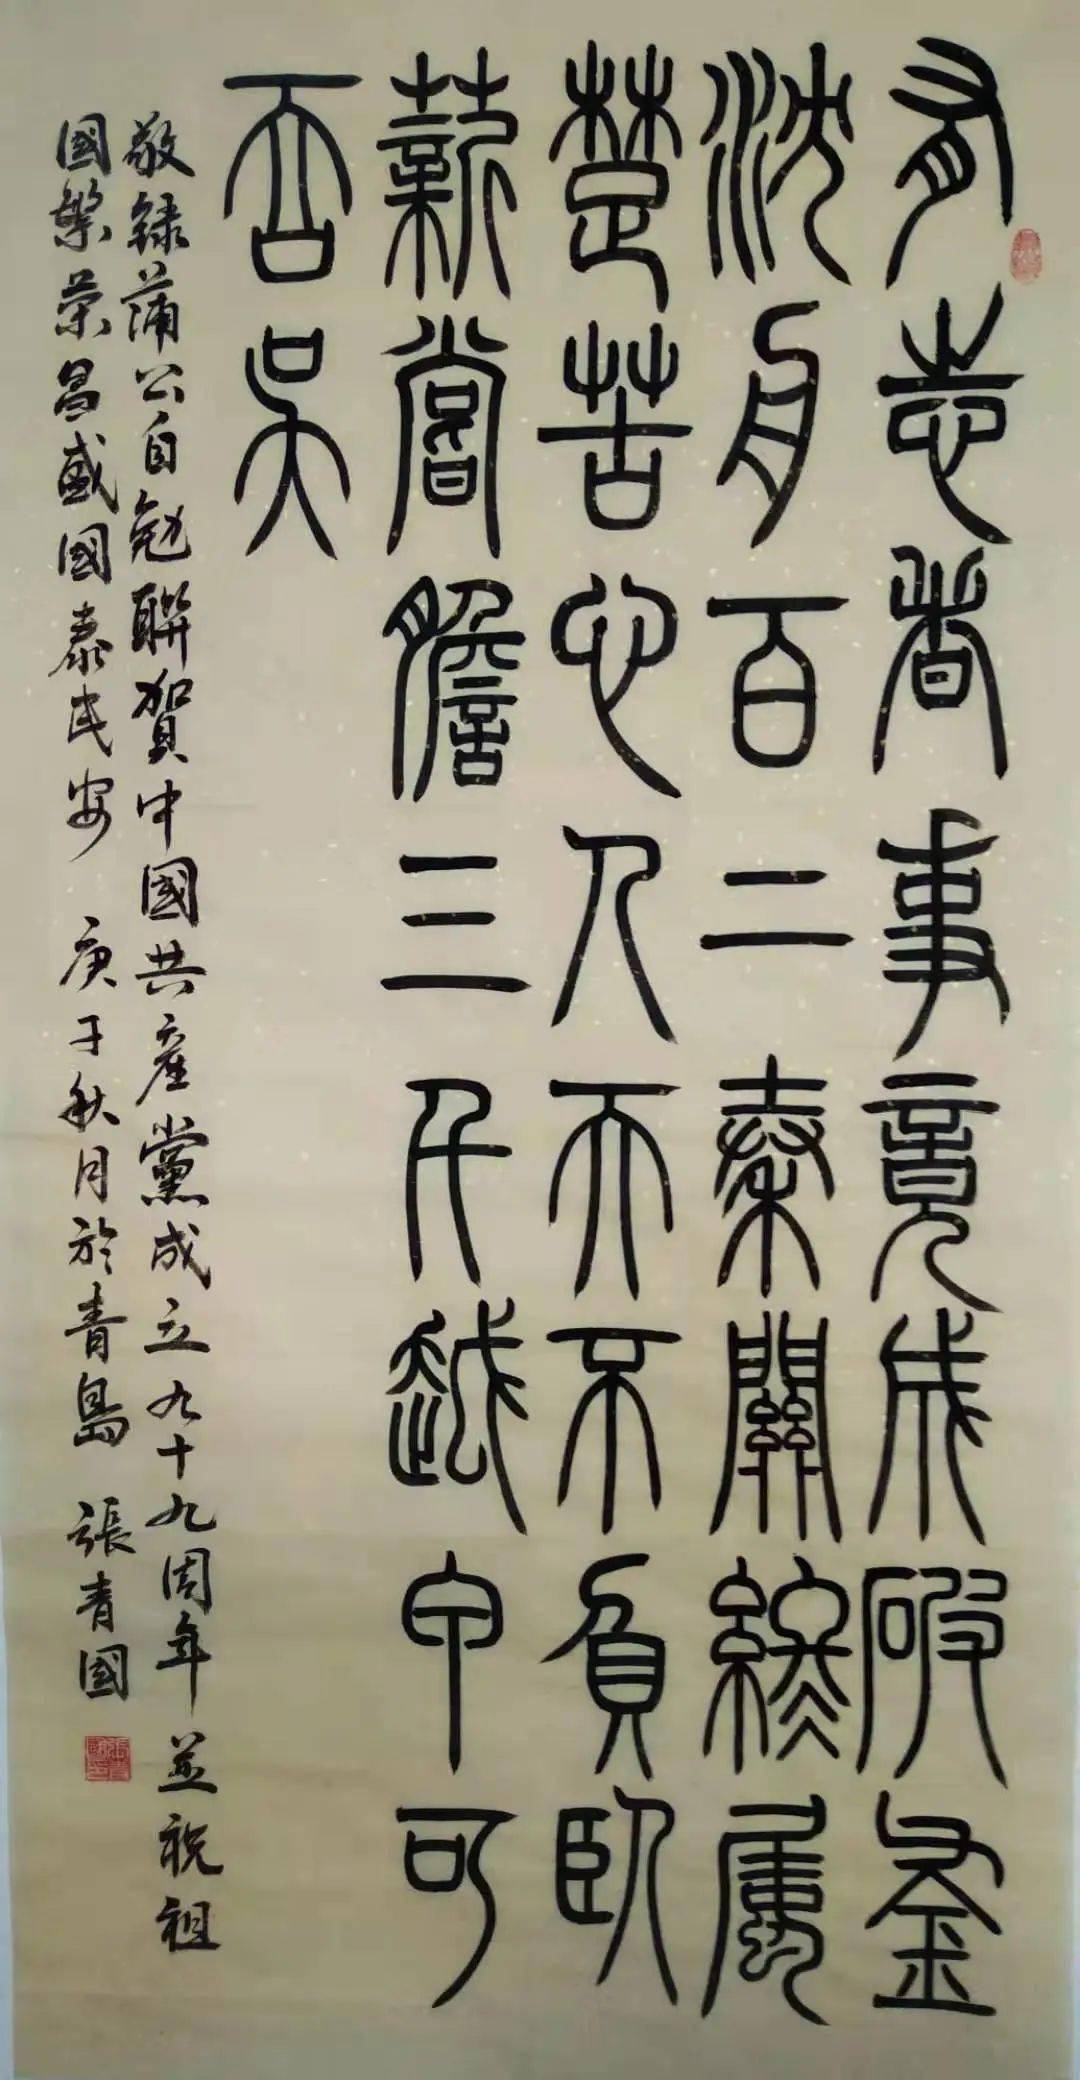 有志者事竟成破釜
沈舟百二秦關終屬
楚苦心人天不負臥
薪嘗膽三千越甲可
吞吳
敬錄蒲公自勉聯賀中國共產黨成立九十九周年並祝祖
國繁榮昌盛國泰民安 庚子秋月於青島 張青國